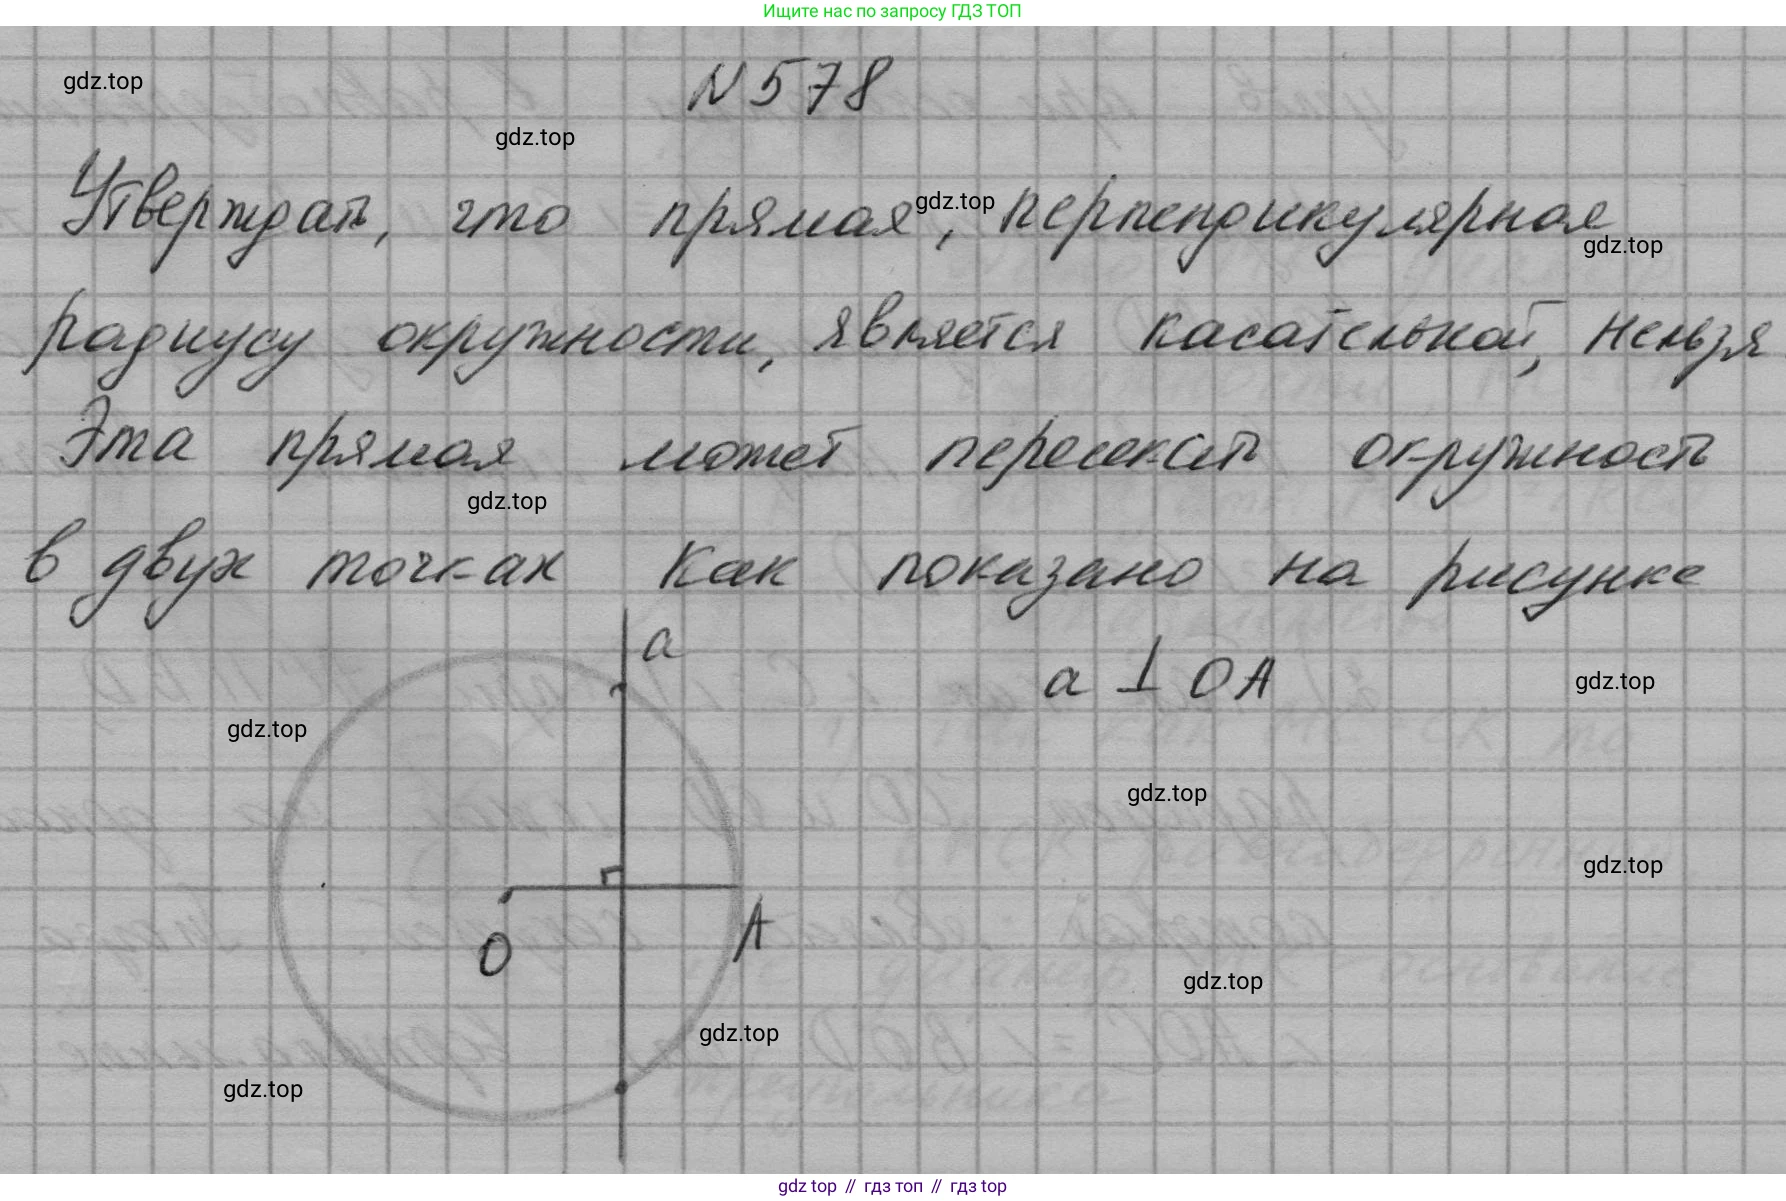 Ищите нас по запросу ГДЗ ТОП
gdz.top
N 578
gdz.top
Утверждать, что прямая, перпендикулярная
gdz.top
gdz.top
радиусу окружности, является касательной, нельзя
Эта прямая может пересекать окружность
gdz.top
в двух точках как показано на рисунке
a
a ⊥ OA
gdz.top
gdz.top
gdz.top
gdz.top
O
A
gdz.top
gdz.top
gdz.top
gdz top // гдз топ // гдз top